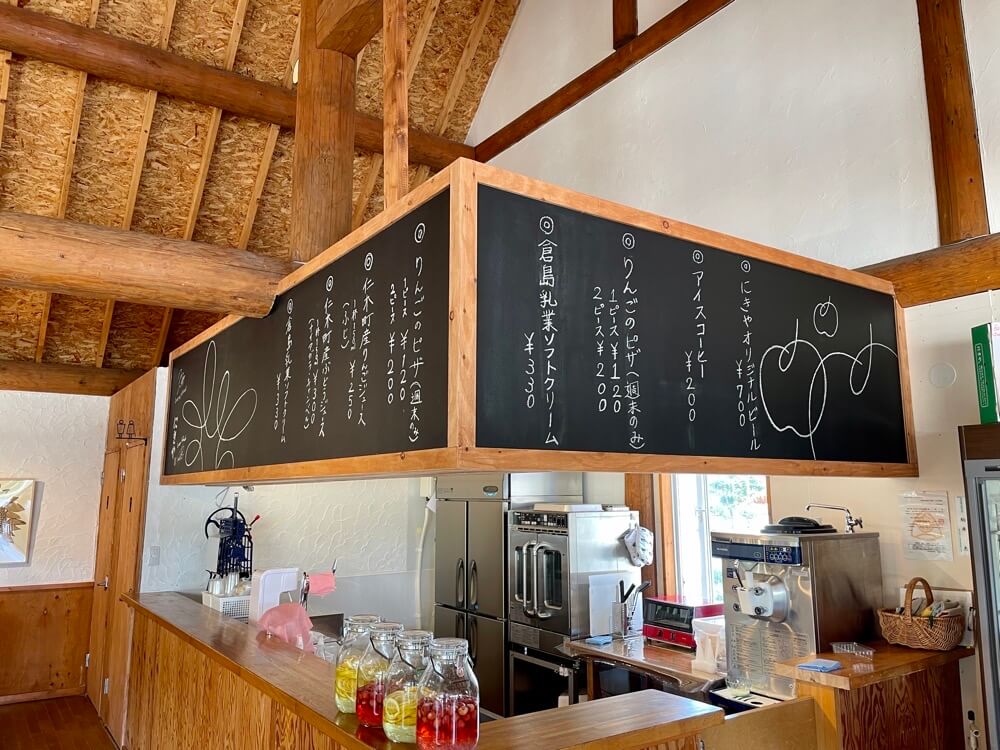 ◎りんごのピザ(週末のみ)
1ピース ¥120
2ピース ¥200
◎仁木町産りんごジュース
1杯 ¥250
(ふじ)
◎仁木町産ぶどうジュース
¥300
◎倉島乳業ソフトクリーム
¥330
◎にきやオリジナルビール
¥700
◎アイスコーヒー
¥200
◎りんごのピザ(週末のみ)
1ピース¥120
2ピース¥200
◎倉島乳業ソフトクリーム
¥330